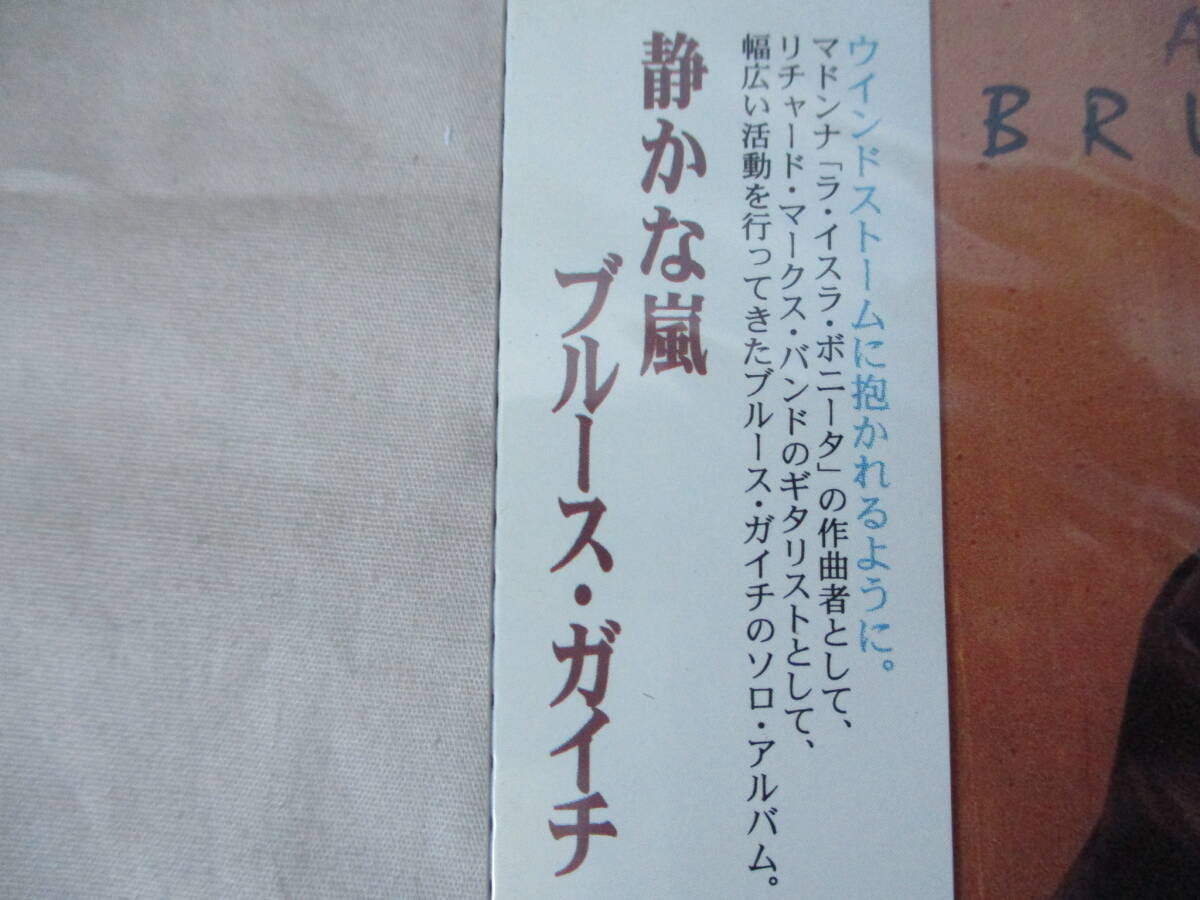 ウインドストームに抱かれるように。
マドンナ「ラ・イスラ・ボニータ」の作曲者として、
リチャード・マークス・バンドのギタリストとして、
幅広い活動を行ってきたブルース・ガイチのソロ・アルバム。
静かな嵐
ブルース・ガイチ
A
BRU